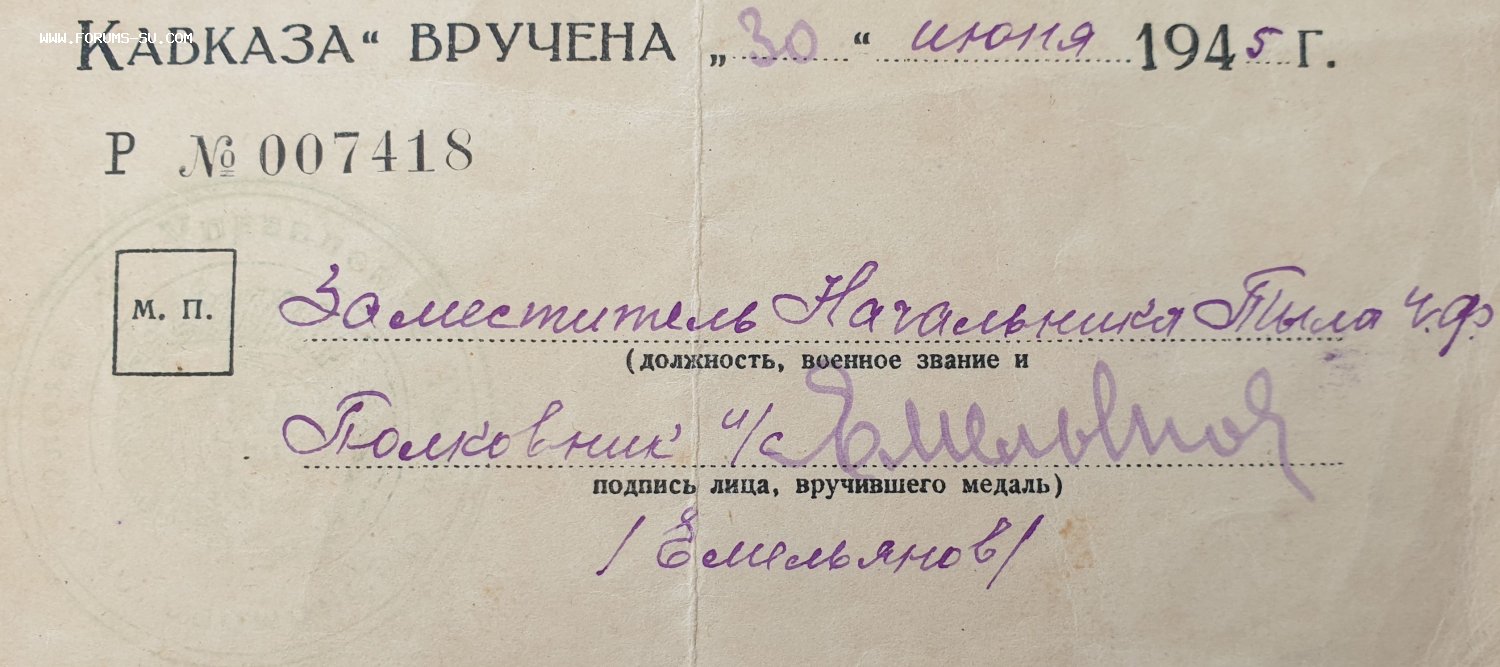 WWW.FORUMS-SU.COM
КАВКАЗА“ ВРУЧЕНА „30“ июня 1945 г.
Р № 007418
М. П.
Заместитель Начальника Тыла Ч.Ф.
(должность, военное звание и
Полковник и/с Емельянов
подпись лица, вручившего медаль)
/Емельянов/